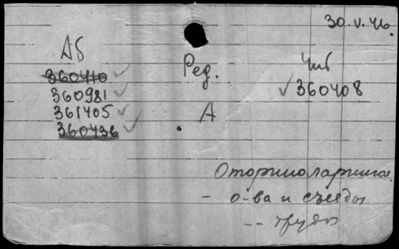 30.V.46.
Аб Ред. Чиб
360410 ✓
360981 ✓ ✓ 360408
361405 ✓ А
360436 ✓
Оториноларингол.
- о-ва и съезды
-- труды